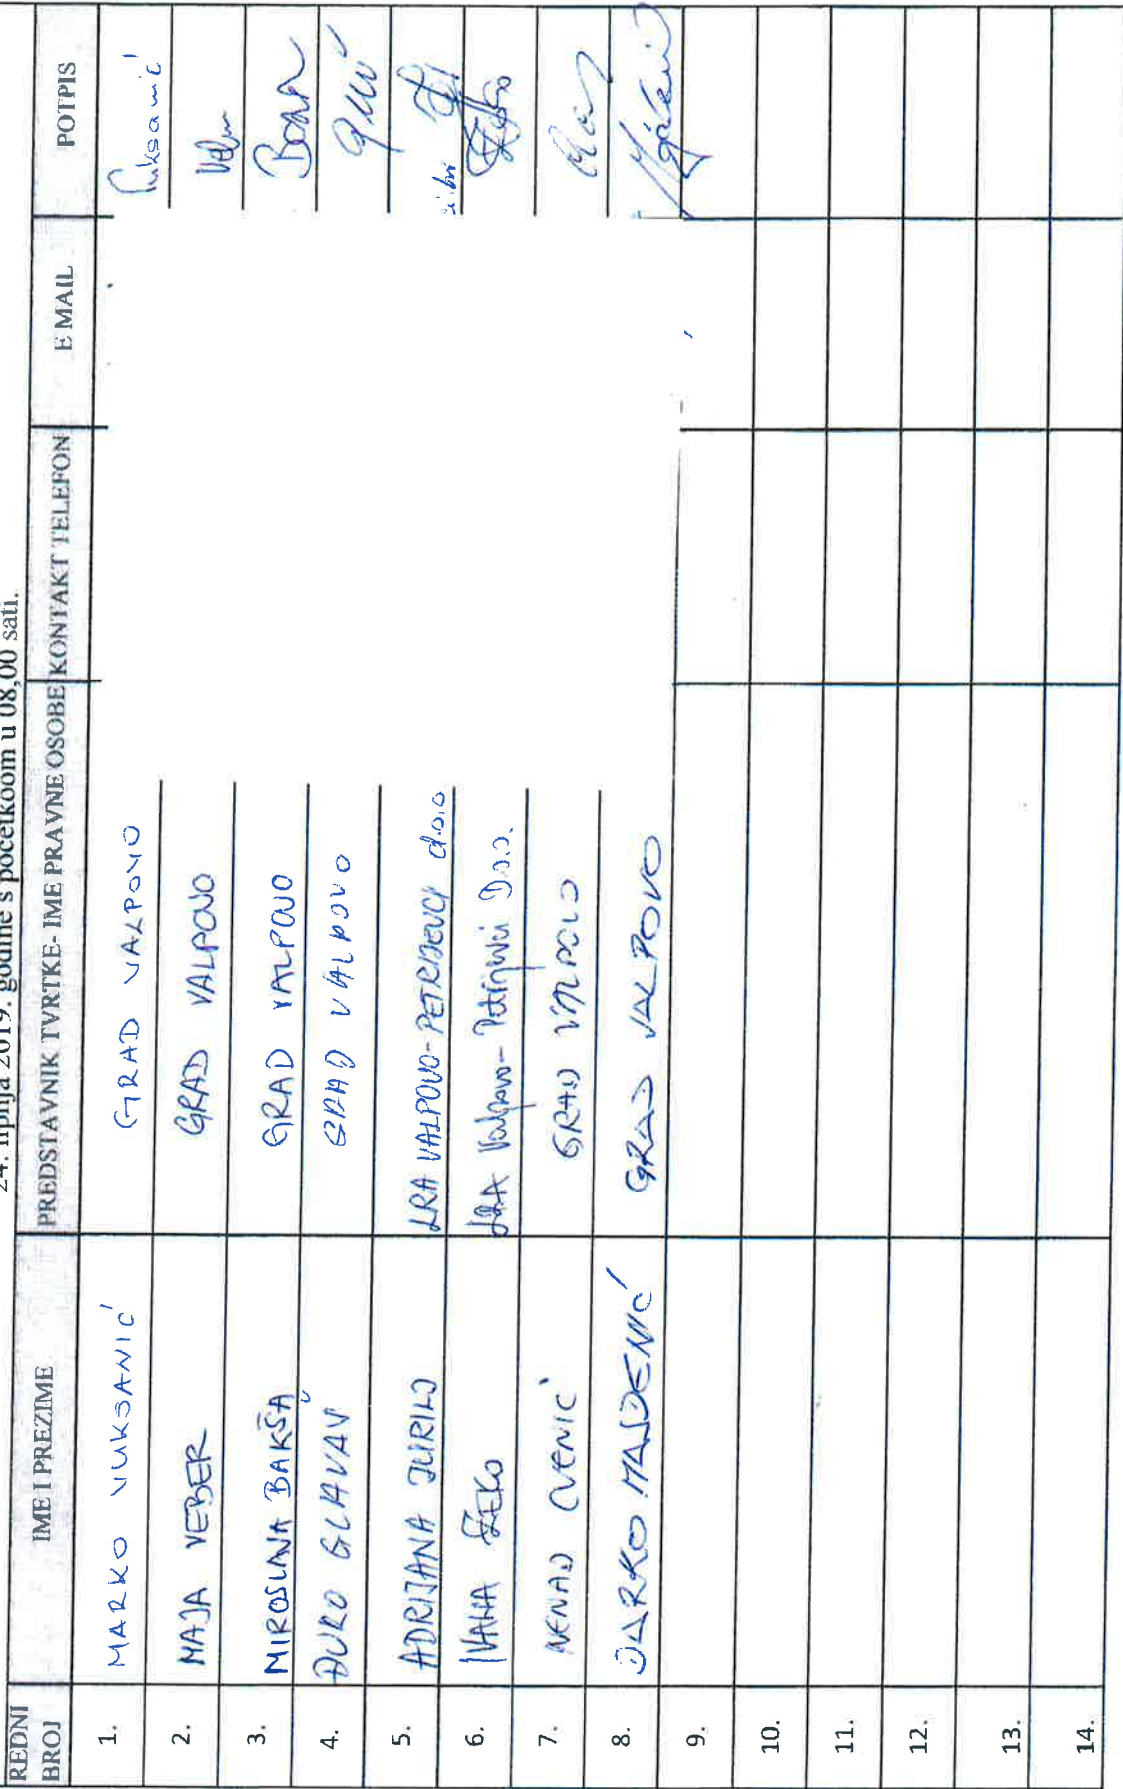 24. lipnja 2019. godine s početkoom u 08,00 sati.
REDNI BROJ IME I PREZIME PREDSTAVNIK TVRTKE- IME PRAVNE OSOBE KONTAKT TELEFON E MAIL POTPIS
1. MARKO VUKSANIĆ GRAD VALPOVO Vuksanić
2. MAJA VEBER GRAD VALPOVO
3. MIROSLAVA BAKŠA GRAD VALPOVO
4. ĐURO GLAVAŠ GRAD VALPOVO
5. ADRIJANA JURILJ LRA VALPOVO-PETRIJEVCI d.o.o
6. IVANA ŽEKO LRA Valpovo-Petrijevci D.o.o.
7. NENAD CVENIĆ GRAD VALPOVO
8. DARKO MAJDENIĆ GRAD VALPOVO
9.
10.
11.
12.
13.
14.